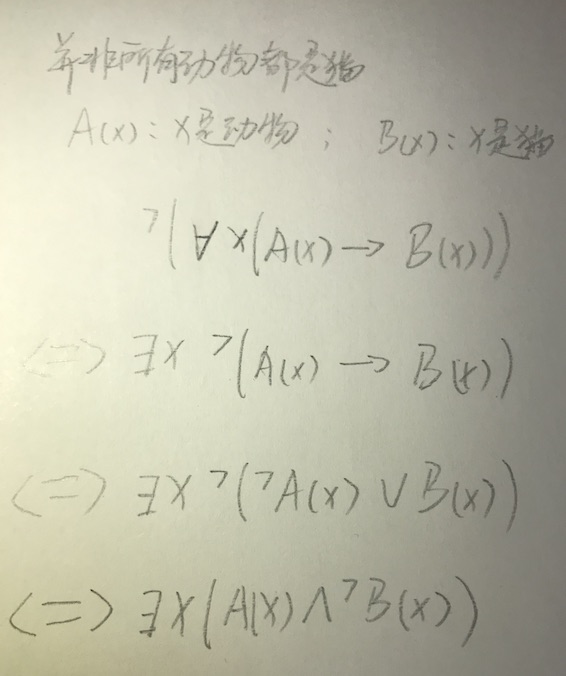 并非所有动物都是猫
A(x): x是动物 ; B(x): x是猫
¬(∀x(A(x) → B(x)))
<=> ∃x ¬(A(x) → B(x))
<=> ∃x ¬(¬A(x) ∨ B(x))
<=> ∃x(A(x) ∧ ¬B(x))